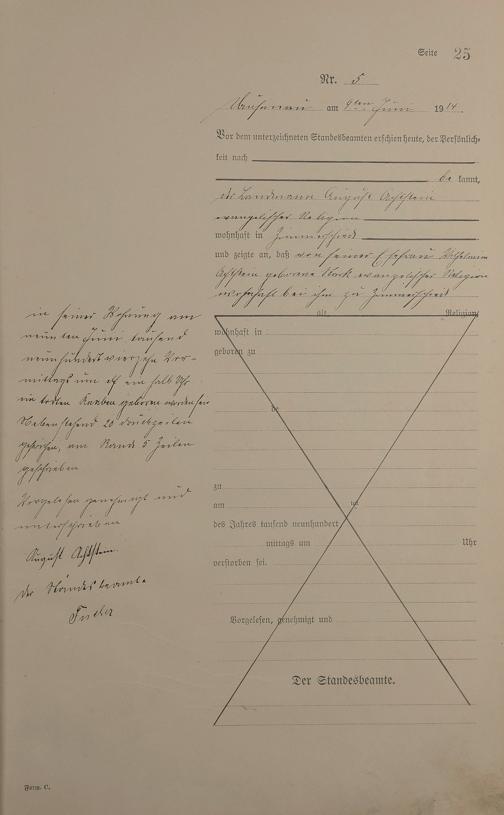 Seite 25
Nr. 5
am 9ten Juni 1914
Vor dem unterzeichneten Standesbeamten erschien heute, der Persönlich-
keit nach
be kannt,
der Landmann August Achstein
evangelischer Religion
wohnhaft in Zimmerschied
und zeigte an, daß von seiner Ehefrau Wilhelmine
Achstein geborene evangelischer Religion
wohnhaft bei ihm zu Zimmerschied
alt, Religion,
wohnhaft in
geboren zu
be
zu
am ten
des Jahres tausend neunhundert
mittags um Uhr
verstorben sei.
Vorgelesen, genehmigt und
Der Standesbeamte.
in seiner Wohnung am
neunten Juni tausend
neunhundert vierzehn Vor-
mittags um elf ein halb Uhr
ein todter Knaben geboren worden sei
Nebenstehend 20 Druckzeilen
gestrichen, am Rande 5 Zeilen
geschrieben
Vorgelesen genehmigt und
unterschrieben
August Achstein.
Der Standesbeamte
Form. C.